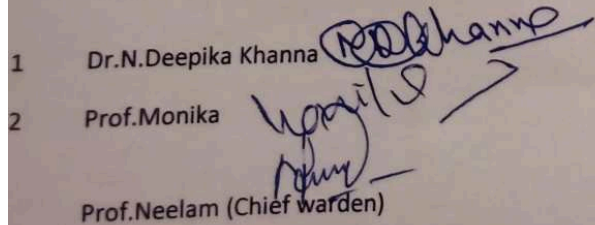 1 Dr.N.Deepika Khanna NDKhanna
2 Prof.Monika
Prof.Neelam (Chief warden)